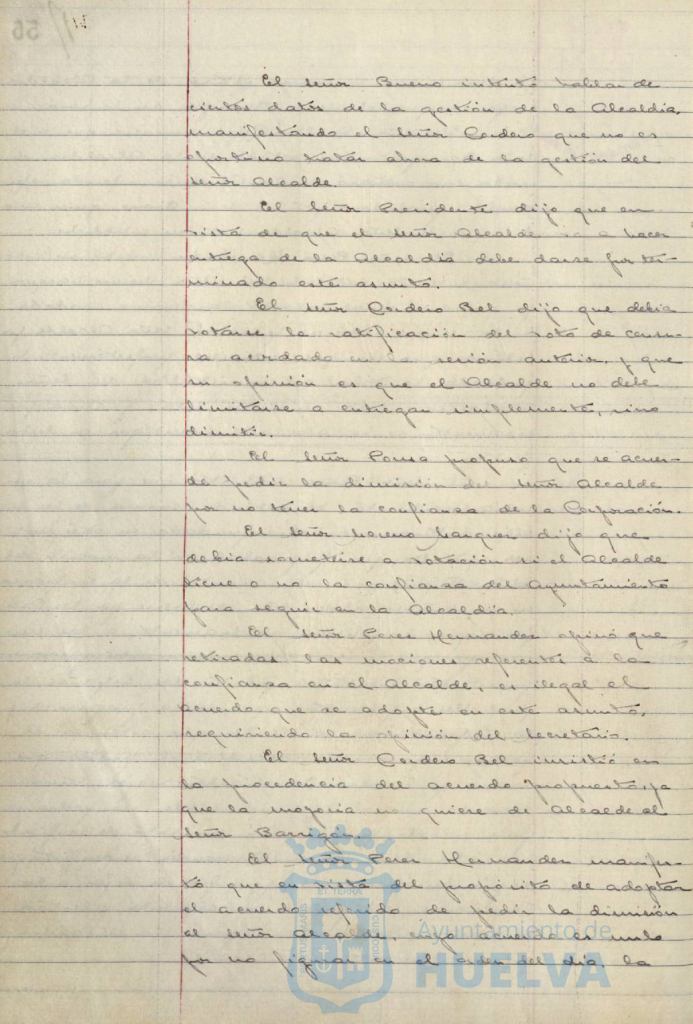 El señor Bueno intentó hablar de
ciertos datos de la gestión de la Alcaldía,
manifestándo el señor Cordero que no es
oportuno tratar ahora de la gestión del
señor Alcalde.
El señor Presidente dijo que en
vista de que el señor Alcalde va a hacer
entrega de la Alcaldía debe darse por ter-
minado este asunto.
El señor Cordero Bel dijo que debia
votarse la ratificación del voto de censu-
ra acordado en la sesión anterior, y que
su opinión es que el Alcalde no debe
limitarse a entregar simplemente, sino
dimitir.
El señor Ponce propuso que se acuer-
de pedir la dimisión del señor Alcalde
por no tener la confianza de la Corporación.
El señor Moreno Marquez dijo que
debia someterse a votación si el Alcalde
tiene o no la confianza del Ayuntamiento
para seguir en la Alcaldía.
El señor Perez Hernandez opinó que
retiradas las mociones referentes á la
confianza en el Alcalde, es ilegal el
acuerdo que se adopte en este asunto,
requiriendo la opinión del Secretario.
El señor Cordero Bel insistió en
la procedencia del acuerdo propuesto, ya
que la mayoria no quiere de Alcalde al
señor Barrigón.
El señor Perez Hernandez manifes-
tó que en vista del propósito de adoptar
el acuerdo referido de pedir la dimisión
al señor Alcalde, cuyo acuerdo es nulo
por no figurar en el orden del dia, la
Ayuntamiento de
HUELVA